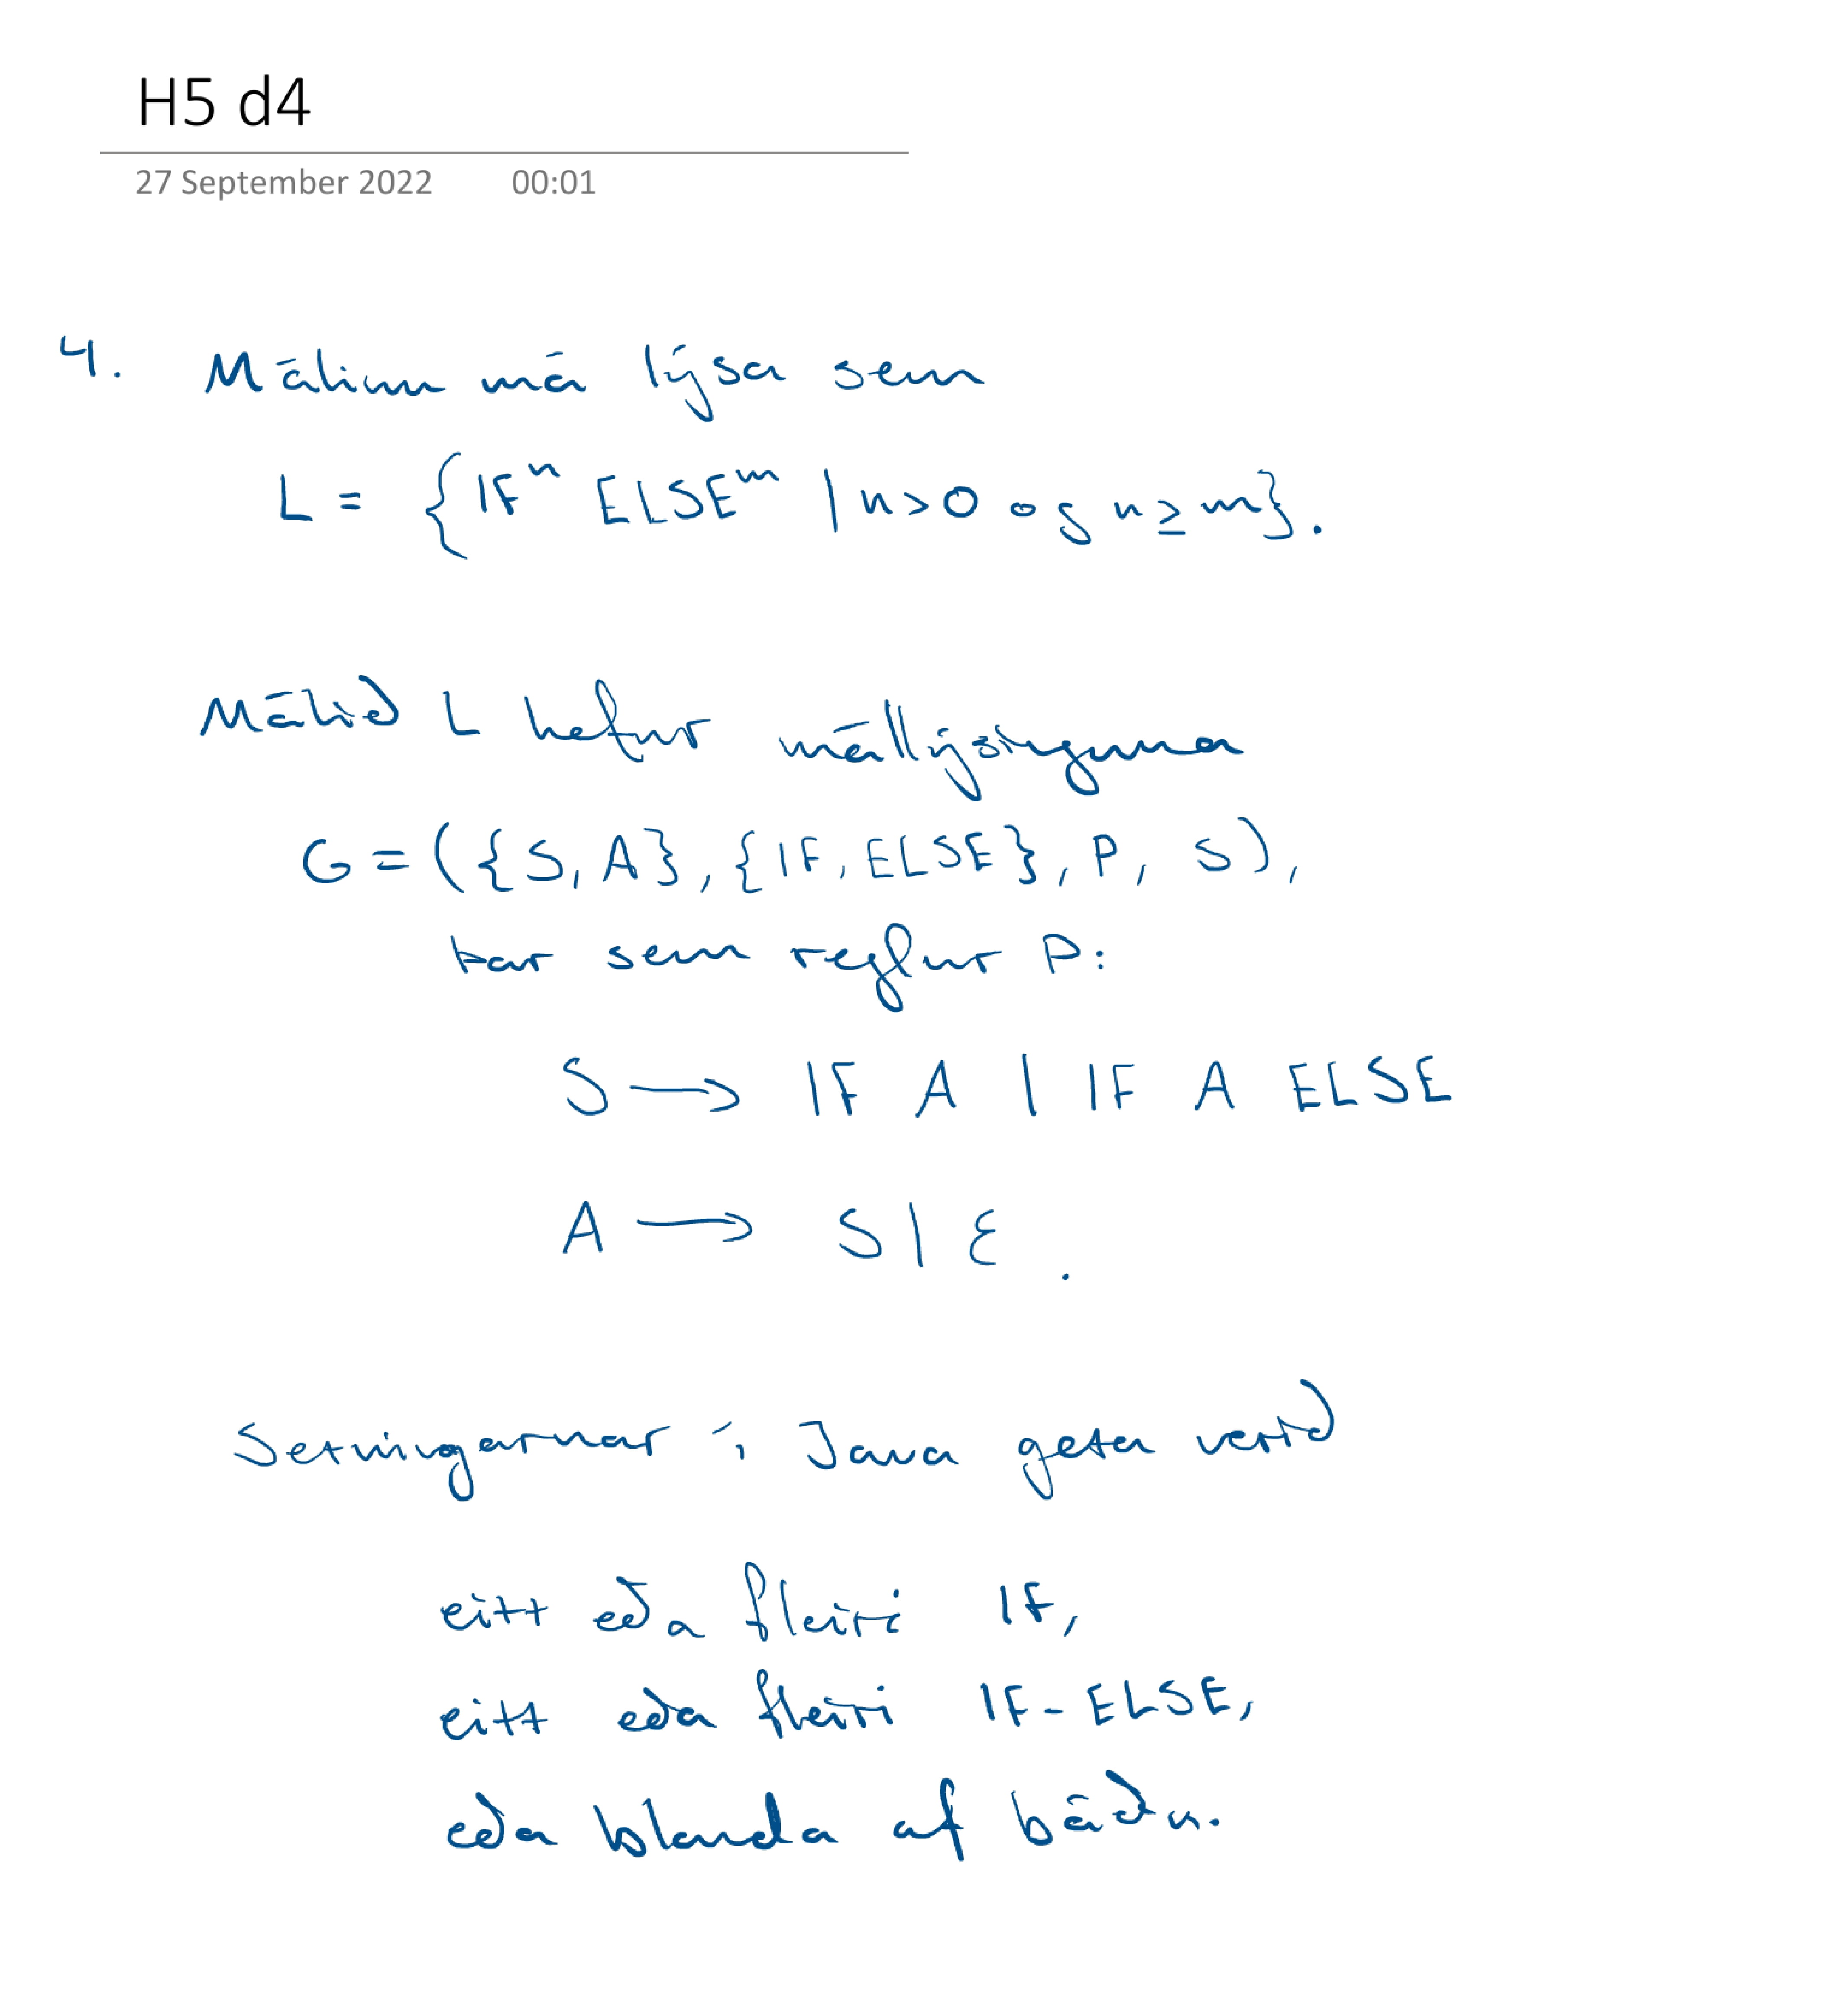 H5 d4
27 September 2022 00:01
4. Málinu má lýsa sem
L = {IFⁿ ELSEᵐ | n>0 og n≥m}.
Málið L hefur mállýsinguna
G = ({S, A}, {IF, ELSE}, P, S),
þar sem reglur P:
S → IF A | IF A ELSE
A → S | ε.
Setningarnar í Java geta verið
eitt eða fleiri IF,
eitt eða fleiri IF-ELSE,
eða blanda af báðu.